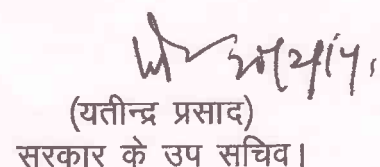 (यतीन्द्र प्रसाद)
सरकार के उप सचिव।